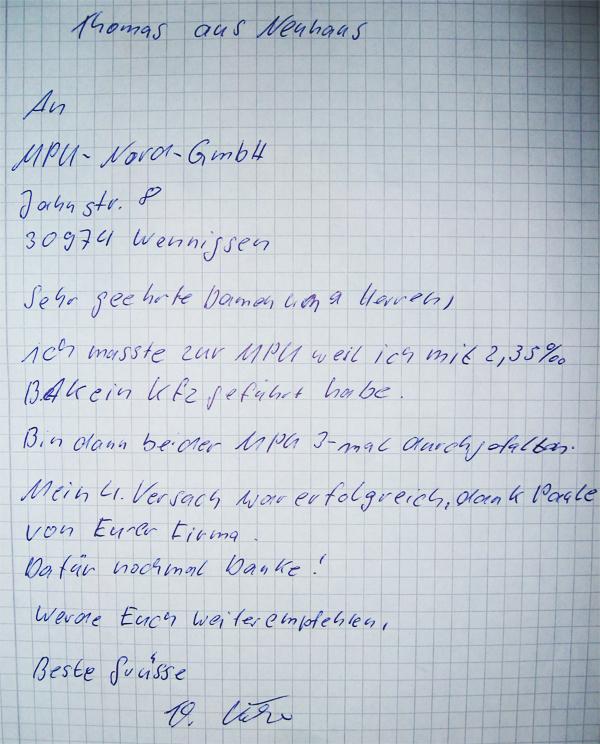 Thomas aus Neuhaus
An
MPU-Nord-GmbH
Jahnstr. 8
30974 Wennigsen
Sehr geehrte Damen und Herren,
ich musste zur MPU weil ich mit 2,35‰
BAK ein Kfz geführt habe.
Bin dann bei der MPU 3-mal durchgefallen.
Mein 4. Versuch war erfolgreich, dank Paule
von Eurer Firma.
Dafür nochmal Danke!
Werde Euch weiterempfehlen,
Beste Grüsse